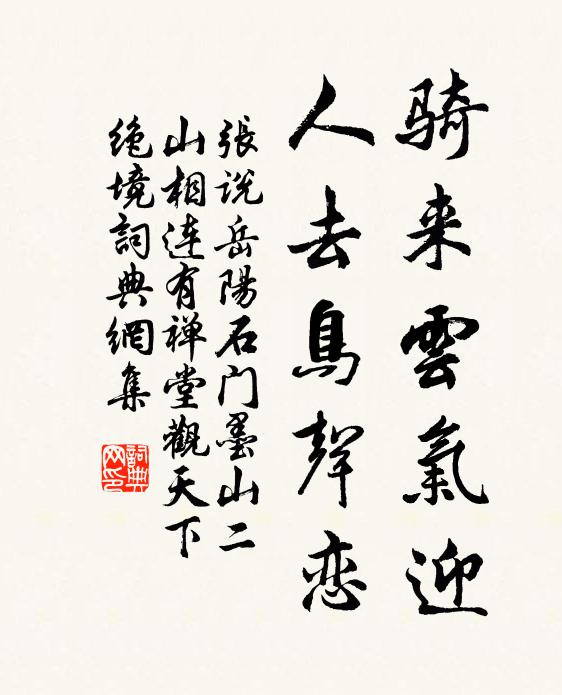 骑来雲氣迎
人去鳥聲恋
張说岳陽石门墨山二
山相连有禅堂觀天下
绝境詞典網集
詞典网印